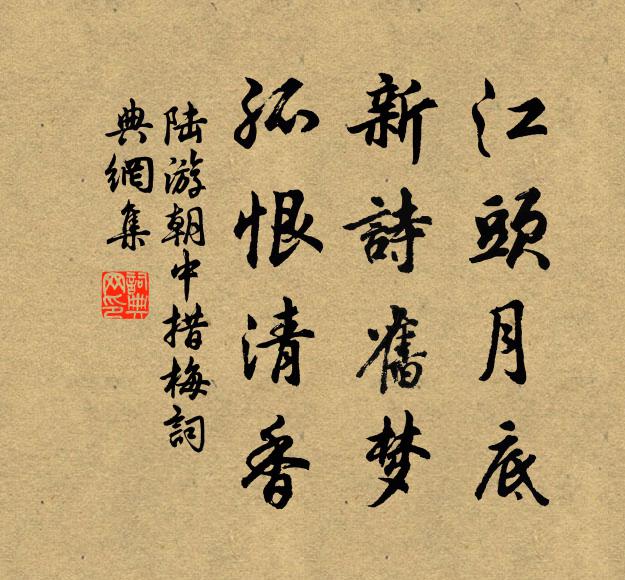 江頭月底
新詩舊梦
孤恨清香
陆游朝中措梅詞
典網集
詞典網印